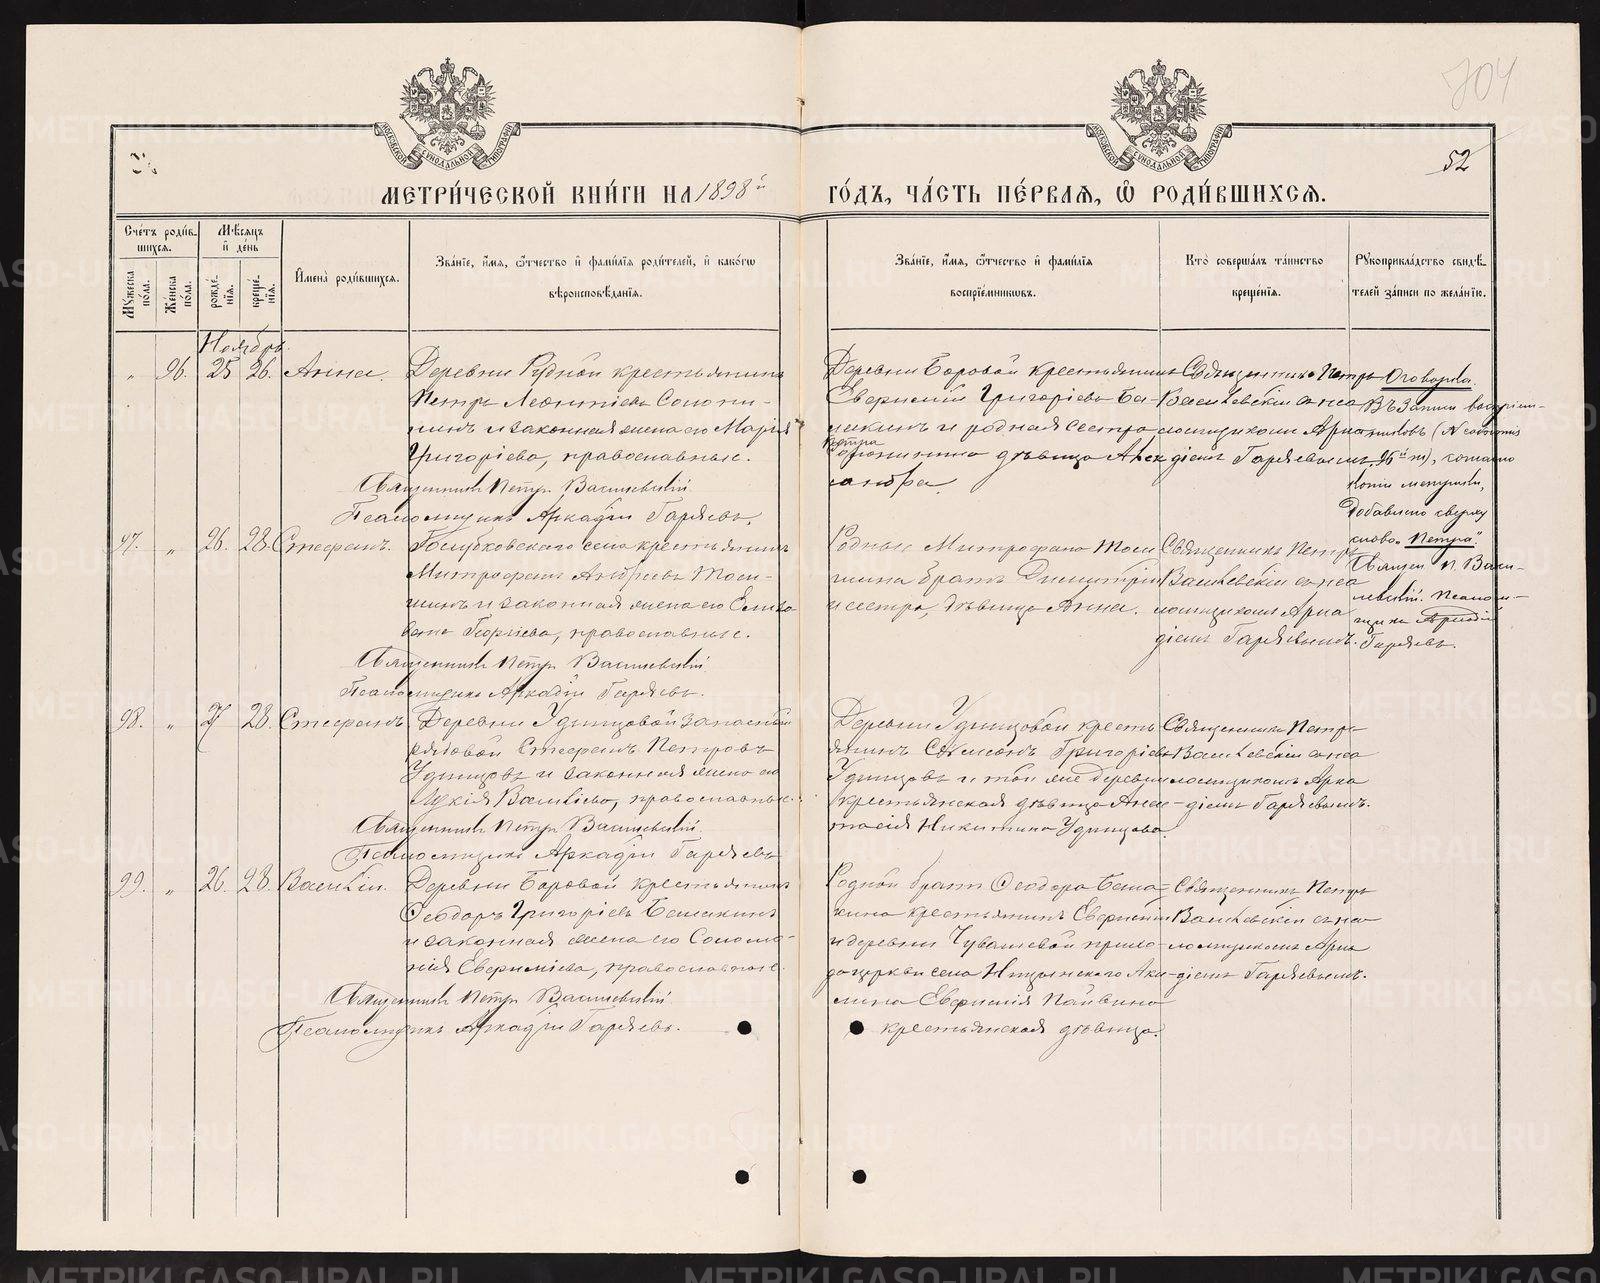 704
52
МЕТРИ́ЧЕСКОЙ КНИ́ГИ НА 1898й
ГО́ДЪ, ЧА́СТЬ ПЕ́РВАЯ, Ѡ РОДИ́ВШИХСЯ.
Сче́тъ роди́в-
шихся.
Мѣ́сяцъ
и де́нь
Му́жеска по́ла.
Же́нска по́ла.
рожде́-
нїя.
креще́-
нїя.
И́мена роди́вшихся.
Зва́нїе, и́мя, ѻ́тчество и фами́лїя роди́телей, и како́гѡ
вѣроисповѣ́данїя.
Зва́нїе, и́мя, ѻ́тчество и фами́лїя
воспрїе́мникѡвъ.
Кто̀ соверша́лъ та́инство
креще́нїя.
Рꙋкоприкла́дство свидѣ́-
телей за́писи по жела́нїю.
Ноябрь.
„ 96. 25 26. Анна.
Деревни Рудной крестьянинъ
Петръ Леонтіевъ Сопони-
нинъ и законная жена его Марія
Григоріева, православные.
Священникъ Петръ Василевскій
Псаломщикъ Аркадій Гаряевъ.
Деревни Боровой крестьянинъ
Евфимій Григоріевъ Бы-
и родная сестра
Петра
дѣвица Алек-
сандра.
Священникъ Петръ
Василевскій съ пса-
ломщикомъ Арка-
діемъ Гаряевымъ.
Оговорка.
Въ записи воспріем-
никовъ (№
96й), согласно
копіи метрики,
добавлено сверху
слово „Петра".
Священ. П. Васи-
левскій. Псалом-
щикъ Аркадій
Гаряевъ.
97. „ 26. 28. Стефанъ.
Голубковскаго села крестьянинъ
Митрофанъ Андреевъ
и законная жена его Елиса-
вета Георгіева, православные.
Священникъ Петръ Василевскій
Псаломщикъ Аркадій Гаряевъ.
Родные Митрофана
братъ Димитрій
и сестра, дѣвица Анна.
Священникъ Петръ
Василевскій съ пса-
ломщикомъ Арка-
діемъ Гаряевымъ.
98. „ 27 28. Стефанъ
Деревни Удинцовой запасный
рядовой Стефанъ Петровъ
Удинцовъ и законная жена его
Лукія Василіева, православные.
Священникъ Петръ Василевскій
Псаломщикъ Аркадій Гаряевъ
Деревни Удинцовой кресть-
янинъ Симеонъ Григоріевъ
Удинцовъ и той же деревни
крестьянская дѣвица Анас-
тасія Никитина Удинцова.
Священникъ Петръ
Василевскій съ пса-
ломщикомъ Арка-
діемъ Гаряевымъ.
99. „ 26. 28. Василій.
Деревни Боровой крестьянинъ
Ѳеодоръ Григоріевъ
и законная жена его Соломо-
нія Евфиміева, православные.
Священникъ Петръ Василевскій
Псаломщикъ Аркадій Гаряевъ.
Родной братъ Ѳеодора
крестьянинъ Евфимій
и деревни Чувашевой прихо-
да церкви села Ницынскаго Аки-
лина Евфимія Пайвина
крестьянская дѣвица.
Священникъ Петръ
Василевскій съ пса-
ломщикомъ Арка-
діемъ Гаряевымъ.
METRIKI.GASO-URAL.RU